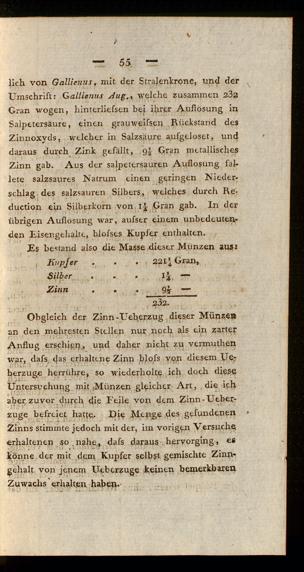 — 55 —
lich von Gallienus, mit der Stralenkrone, und der
Umschrift: Gallienus Aug., welche zusammen 232
Gran wogen, hinterließen bei ihrer Auflösung in
Salpetersäure, einen grauweißen Rückstand des
Zinnoxyds, welcher in Salzsäure aufgelöset, und
daraus durch Zink gefällt, 9½ Gran metallisches
Zinn gab. Aus der salpetersauren Auflösung fäl-
lete salzsaures Natrum einen geringen Nieder-
schlag des salzsauren Silbers, welches durch Re-
duction ein Silberkorn von 1¼ Gran gab. In der
übrigen Auflösung war, außer einem unbedeuten-
den Eisengehalte, bloßes Kupfer enthalten.
Es bestand also die Masse dieser Münzen aus:
Kupfer . . . 221¼ Gran,
Silber . . . 1¼ —
Zinn . . . 9½ —
232.
Obgleich der Zinn-Ueberzug dieser Münzen
an den mehresten Stellen nur noch als ein zarter
Anflug erschien, und daher nicht zu vermuthen
war, daß das erhaltene Zinn bloß von diesem Ue-
berzuge herrühre, so wiederholte ich doch diese
Untersuchung mit Münzen gleicher Art, die ich
aber zuvor durch die Feile von dem Zinn-Ueber-
zuge befreiet hatte. Die Menge des gefundenen
Zinns stimmte jedoch mit der, im vorigen Versuche
erhaltenen so nahe, daß daraus hervorging, es
könne der mit dem Kupfer selbst gemischte Zinn-
gehalt von jenem Ueberzuge keinen bemerkbaren
Zuwachs erhalten haben.